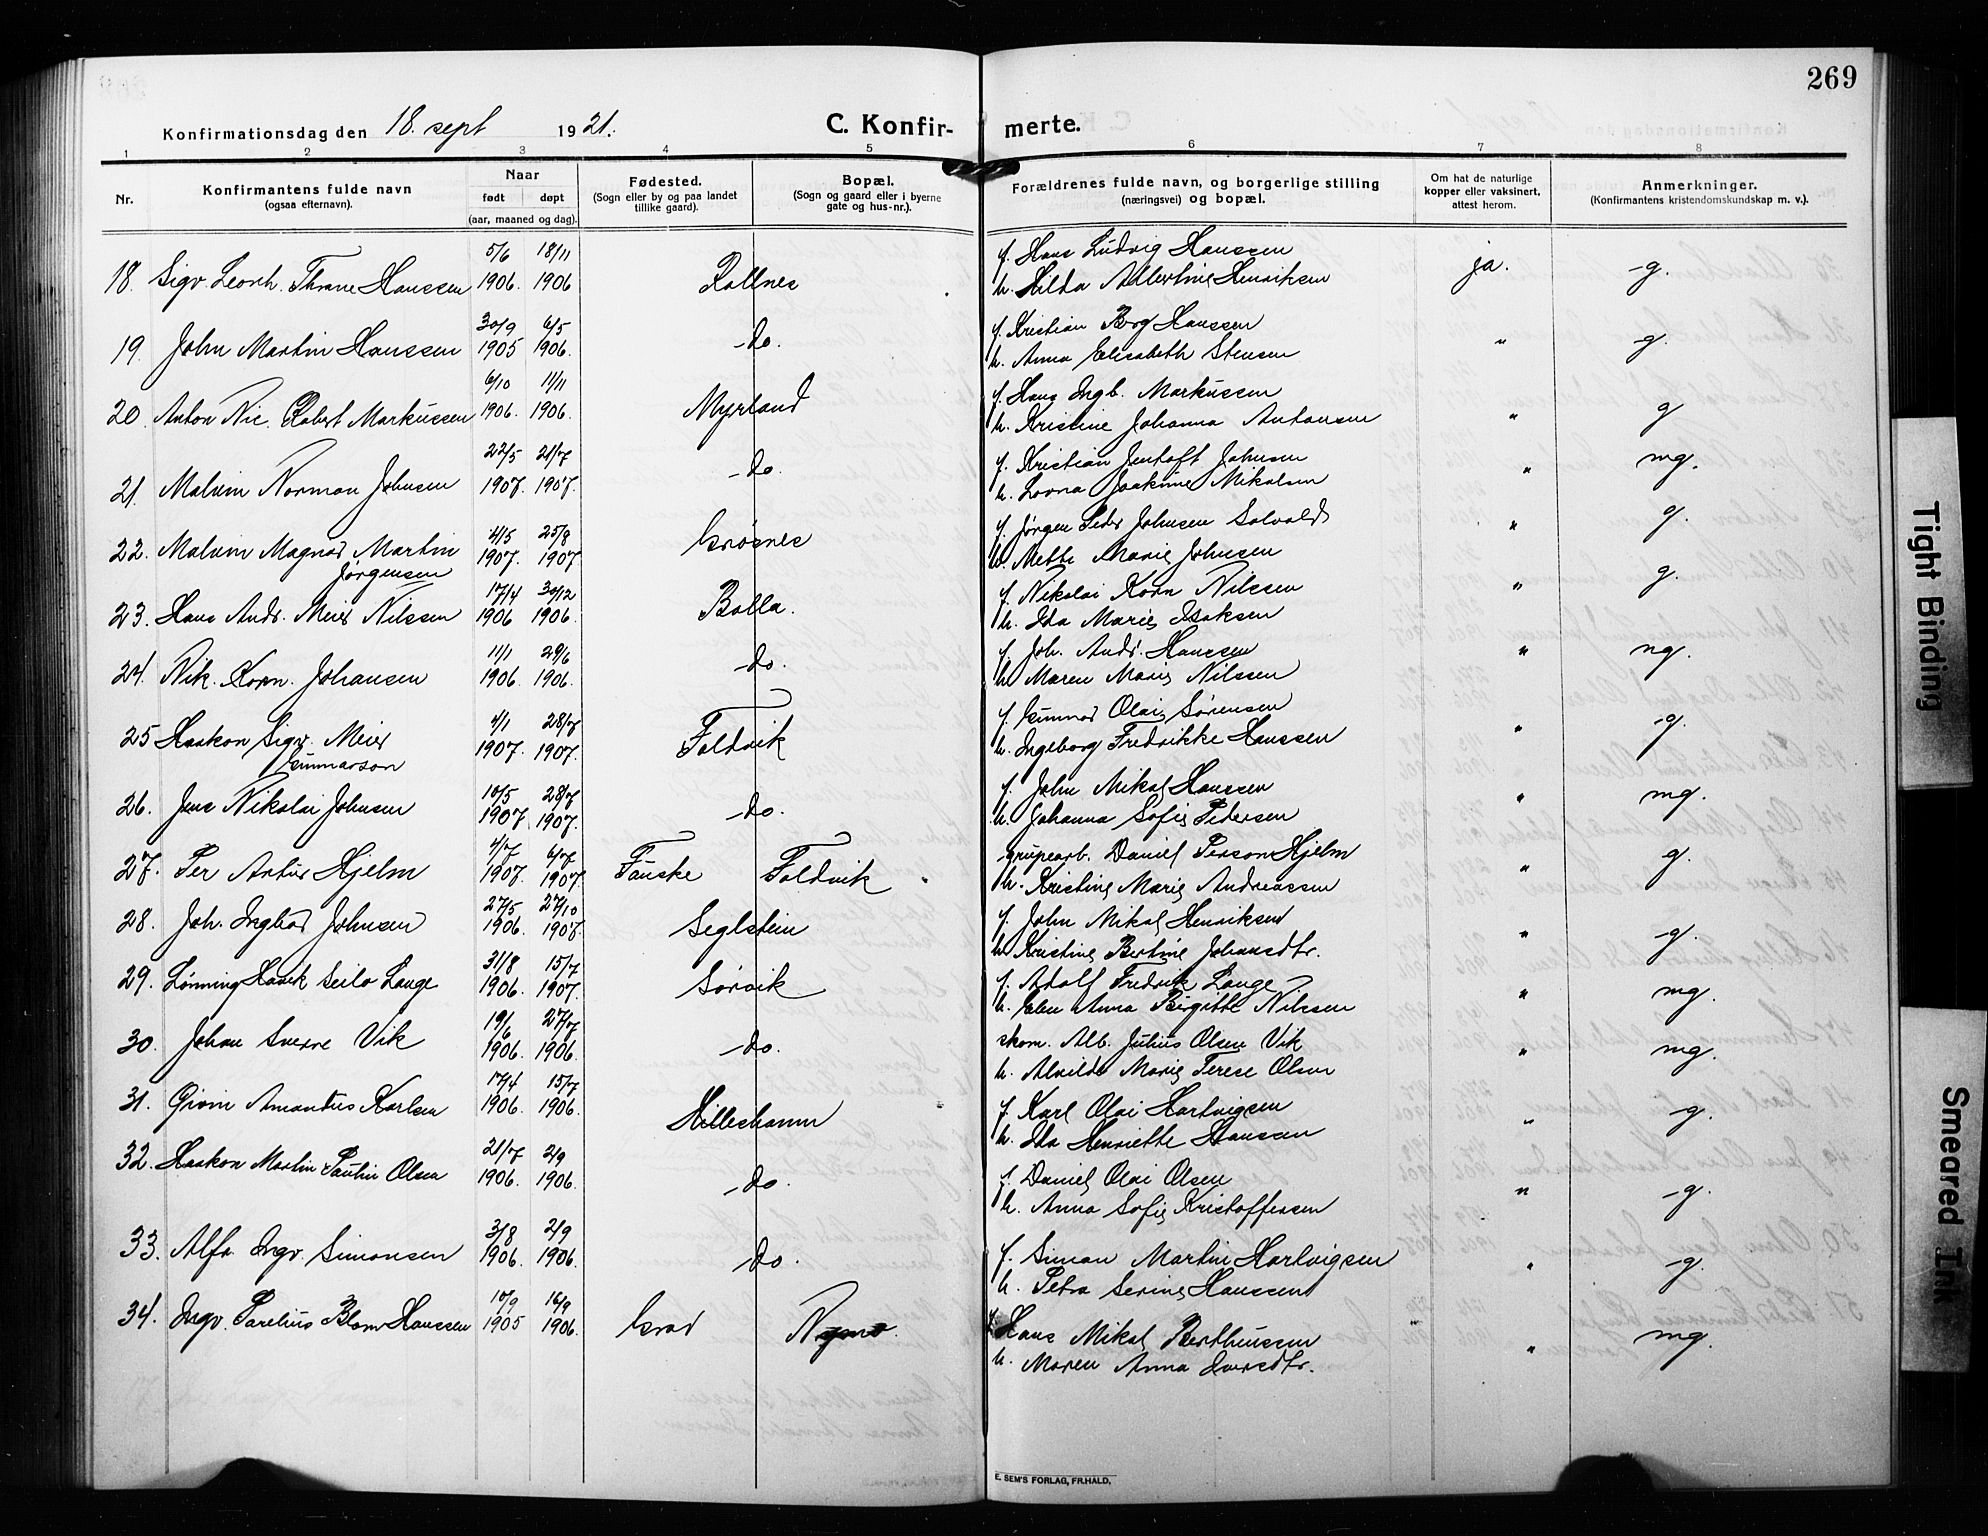 269
Konfirmationsdag den 18. sept 1921.
C. Konfir- merte.
1 2 3 4 5 6 7 8
Nr.
Konfirmantens fulde navn
(ogsaa efternavn).
Naar
født døpt
(aar, maaned og dag).
Fødested.
(Sogn eller by og paa landet
tillike gaard).
Bopæl.
(Sogn og gaard eller i byerne
gate og hus-nr.).
Forældrenes fulde navn, og borgerlige stilling
(næringsvei) og bopæl.
Om hat de naturlige
kopper eller vaksinert,
attest herom.
Anmerkninger.
(Konfirmantens kristendomskundskap m. v.).
5/6 18/11 f. Hans Ludvig Hanssen
18. Sigv. Leonh. Thrane Hanssen 1906. 1906 Rollnes h. Hilda Albertine Henriksen ja. -g.
30/9 6/5 f. Kristian Borg Hanssen
19. John Martin Hanssen 1905 1906. -do. h. Anna Elisabeth Stensen " -g.
6/10 11/11 f. Hans Ingb. Markussen
20. Anton Nic. Robert Markussen 1906. 1906. Myrland h. Kristine Johanna Antonsen " g
22/5 21/7 f. Kristian Jentoft Johnsen
21. Malvin Norman Johnsen 1907. 1907. -do. h. Lovna Joakime Mikalsen " mg.
4/5 25/8 f. Jørgen Peder Johnsen Solvold
22. Malvin Magnar Martin 1907. 1907 Grøsnes h. Mette Marie Johnsen " g.
Jørgensen
17/4 30/12 f. Nikolai Korn Nilssen
23. Hans Andr. Meier Nilssen 1906 1906. Bolla. h. Ida Marie Isaksen " g.
11/1 29/6 f. Joh. Andr. Hanssen
24. Nik. Korn. Johansen 1906. 1906. -do. h Maren Marie Nilssen " ng.
4/1 28/7 f. Gunnar Olai Sørensen
25 Haakon Sigv. Meier 1907. 1907. Foldvik h. Ingeborg Fredrikke Hanssen " -g.
Gunnarson
10/5 28/7 f. John Mikal Hanssen
26. Jens Nikolai Johnsen 1907 1907. -do. h. Johanna Sofie Pedersen " mg.
4/7 6/7 grupearb. Daniel Person Hjelm
27. Per Artur Hjelm 1907. 1907. Fauske Foldvik h. Kristine Marie Andreassen " g.
27/5 27/10 f. John Mikal Henriksen
28. Joh. Ingbar Johnsen 1906. 1907. Seglstein h Kristine Bertine Johansdtr. " -g.
31/8 15/7 f. Adolf Fredrik Lange
29. Lønning Havik Seilo Lange 1906. 1907. Sørvik h. Elen Anna Birgitte Nilssen " mg.
19/6 27/7 skom. Alb. Julius Olsen Vik
30. Johan Sverre Vik 1906. 1906. -do. h. Alvilde Marie Terese Olsen " mg.
17/4 15/7 f. Karl Olai Hartvigsen
31. Givin Amandus Karlsen 1906. 1906. Hilleshamn h. Ida Henriette Hanssen " -g.
21/7 2/9 f. Daniel Olai Olsen
32. Haakon Martin Paulin Olsen 1906. 1906. -do. h. Anna Sofie Kristoffersen " -g.
3/8 2/9 f. Simon Martin Hartvigsen
33. Alfr. Ingv. Simonsen 1906. 1906. -do. h. Petra Serine Hanssen " -g.
10/9 16/9 f. Hans Mikal Bertheussen
34. Ingv. Parelius Blom Hanssen 1905 1906. h. Maren Anna Iversdtr. " mg.
E. SEM'S FORLAG, FR.HALD.
Tight Binding
Smeared Ink